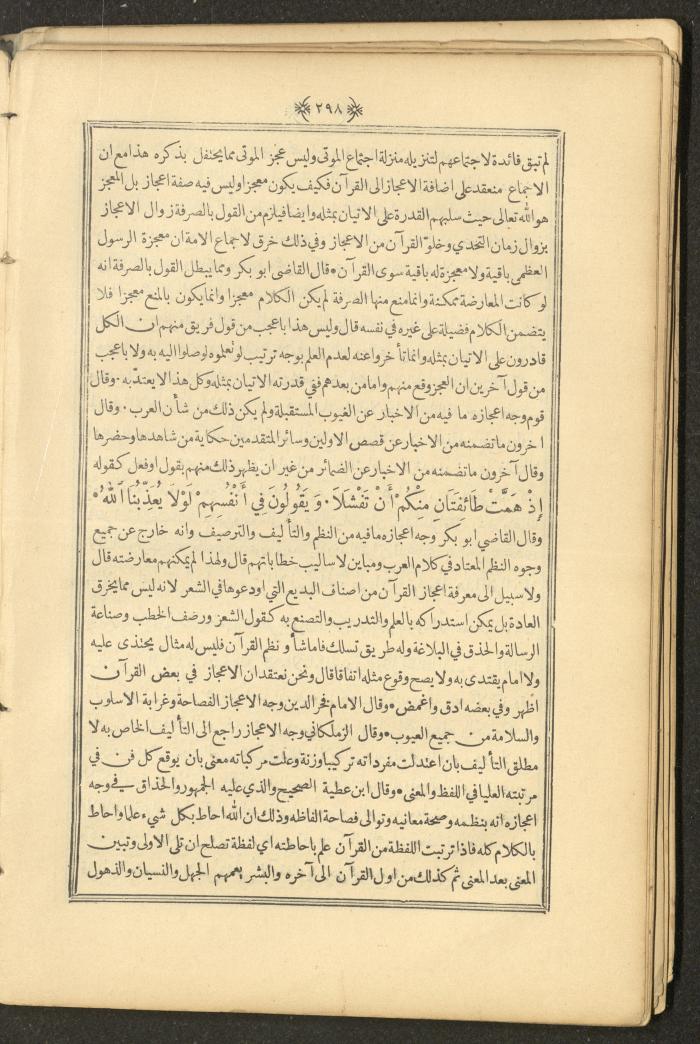 ٢٩٨
لم تبق فائدة لاجتماعهم لتنزيله منزلة اجتماع الموتى وليس عجز الموتى مما يحتفل بذكره هذا مع ان
الاجماع منعقد على اضافة الاعجاز الى القرآن فكيف يكون معجزا وليس فيه صفة اعجاز بل المعجز
هو الله تعالى حيث سلبهم القدرة على الاتيان بمثله وايضا فيلزم من القول بالصرفة زوال الاعجاز
بزوال زمان التحدي وخلوّ القرآن من الاعجاز وفي ذلك خرق لاجماع الامة ان معجزة الرسول
العظمى باقية ولا معجزة له باقية سوى القرآن • قال القاضى ابو بكر ومما يبطل القول بالصرفة انه
لو كانت المعارضة ممكنة وانما منع منها الصرفة لم يكن الكلام معجزا وانما يكون بالمنع معجزا فلا
يتضمن الكلام فضيلة على غيره في نفسه قال وليس هذا باعجب من قول فريق منهم ان الكل
قادرون على الاتيان بمثله وانما تأخروا عنه لعدم العلم بوجه ترتيب لو تعلموه لوصلوا اليه به ولا باعجب
من قول آخرين ان العجز وقع منهم واما من بعدهم ففي قدرته الاتيان بمثله وكل هذا لا يعتدّ به • وقال
قوم وجه اعجازه ما فيه من الاخبار عن الغيوب المستقبلة ولم يكن ذلك من شأن العرب • وقال
اخرون ما تضمنه من الاخبار عن قصص الاولين وسائر المتقدمين حكاية من شاهدها وحضرها
وقال آخرون ما تضمنه من الاخبار عن الضمائر من غير ان يظهر ذلك منهم بقول او فعل كقوله
إِذْ هَمَّتْ طَائِفَتَانِ مِنْكُمْ أَنْ تَفْشَلَا • وَ يَقُولُونَ فِي أَنْفُسِهِمْ لَوْلَا يُعَذِّبُنَا ٱللهُ •
وقال القاضي ابو بكر وجه اعجازه ما فيه من النظم والتأليف والترصيف وانه خارج عن جميع
وجوه النظم المعتاد في كلام العرب ومباين لاساليب خطاباتهم قال ولهذا لم يمكنهم معارضته قال
ولا سبيل الى معرفة اعجاز القرآن من اصناف البديع التي اودعوها في الشعر لانه ليس مما يخرق
العادة بل يمكن استدراكه بالعلم والتدريب والتصنع به كقول الشعر ورصف الخطب وصناعة
الرسالة والحذق في البلاغة وله طريق تسلك فاما شأو نظم القرآن فليس له مثال يحتذى عليه
ولا امام يقتدى به ولا يصح وقوع مثله اتفاقا قال ونحن نعتقد ان الاعجاز في بعض القرآن
اظهر وفي بعضه ادق واغمض • وقال الامام فخر الدين وجه الاعجاز الفصاحة وغرابة الاسلوب
والسلامة من جميع العيوب • وقال الزملكاني وجه الاعجاز راجع الى التأليف الخاص به لا
مطلق التأليف بان اعتدلت مفرداته تركيبا وزنة وعلت مركباته معنى بان يوقع كل فن في
مرتبته العليا في اللفظ والمعنى • وقال ابن عطية الصحيح والذي عليه الجمهور والحذاق في وجه
اعجازه انه بنظمه وصحة معانيه وتوالى فصاحة الفاظه وذلك ان الله احاط بكل شيء علما واحاط
بالكلام كله فاذا ترتبت اللفظة من القرآن علم باحاطته اي لفظة تصلح ان تلى الاولى وتبين
المعنى بعد المعنى ثم كذلك من اول القرآن الى آخره والبشر يعمهم الجهل والنسيان والذهول